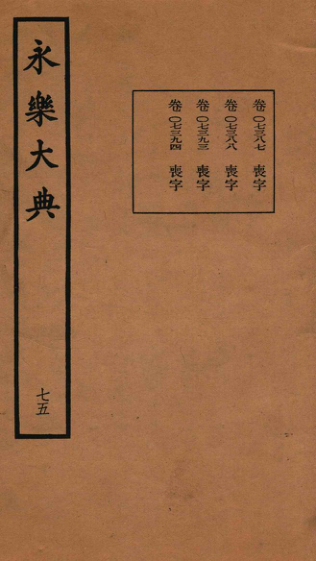 卷〇七三八七 喪字
卷〇七三八八 喪字
卷〇七三九三 喪字
卷〇七三九四 喪字
永樂大典
七五